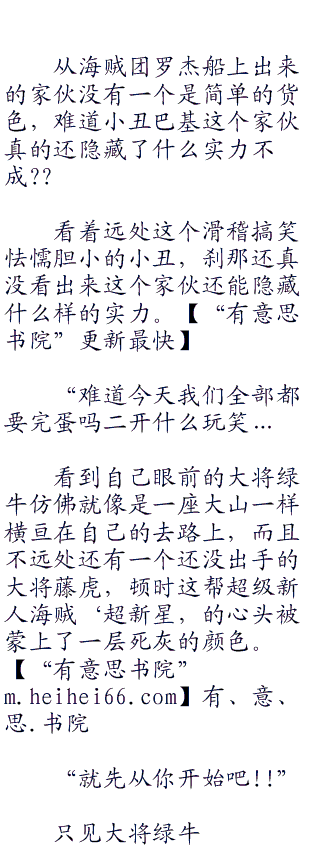 从海贼团罗杰船上出来
的家伙没有一个是简单的货
色，难道小丑巴基这个家伙
真的还隐藏了什么实力不
成??
看着远处这个滑稽搞笑
怯懦胆小的小丑，刹那还真
没看出来这个家伙还能隐藏
什么样的实力。【“有意思
书院”更新最快】
“难道今天我们全部都
要完蛋吗二开什么玩笑…
看到自己眼前的大将绿
牛仿佛就像是一座大山一样
横亘在自己的去路上，而且
不远处还有一个还没出手的
大将藤虎，顿时这帮超级新
人海贼‘超新星，的心头被
蒙上了一层死灰的颜色。
【“有意思书院”
m.heihei66.com】有、意、
思.书院
“就先从你开始吧!!”
只见大将绿牛